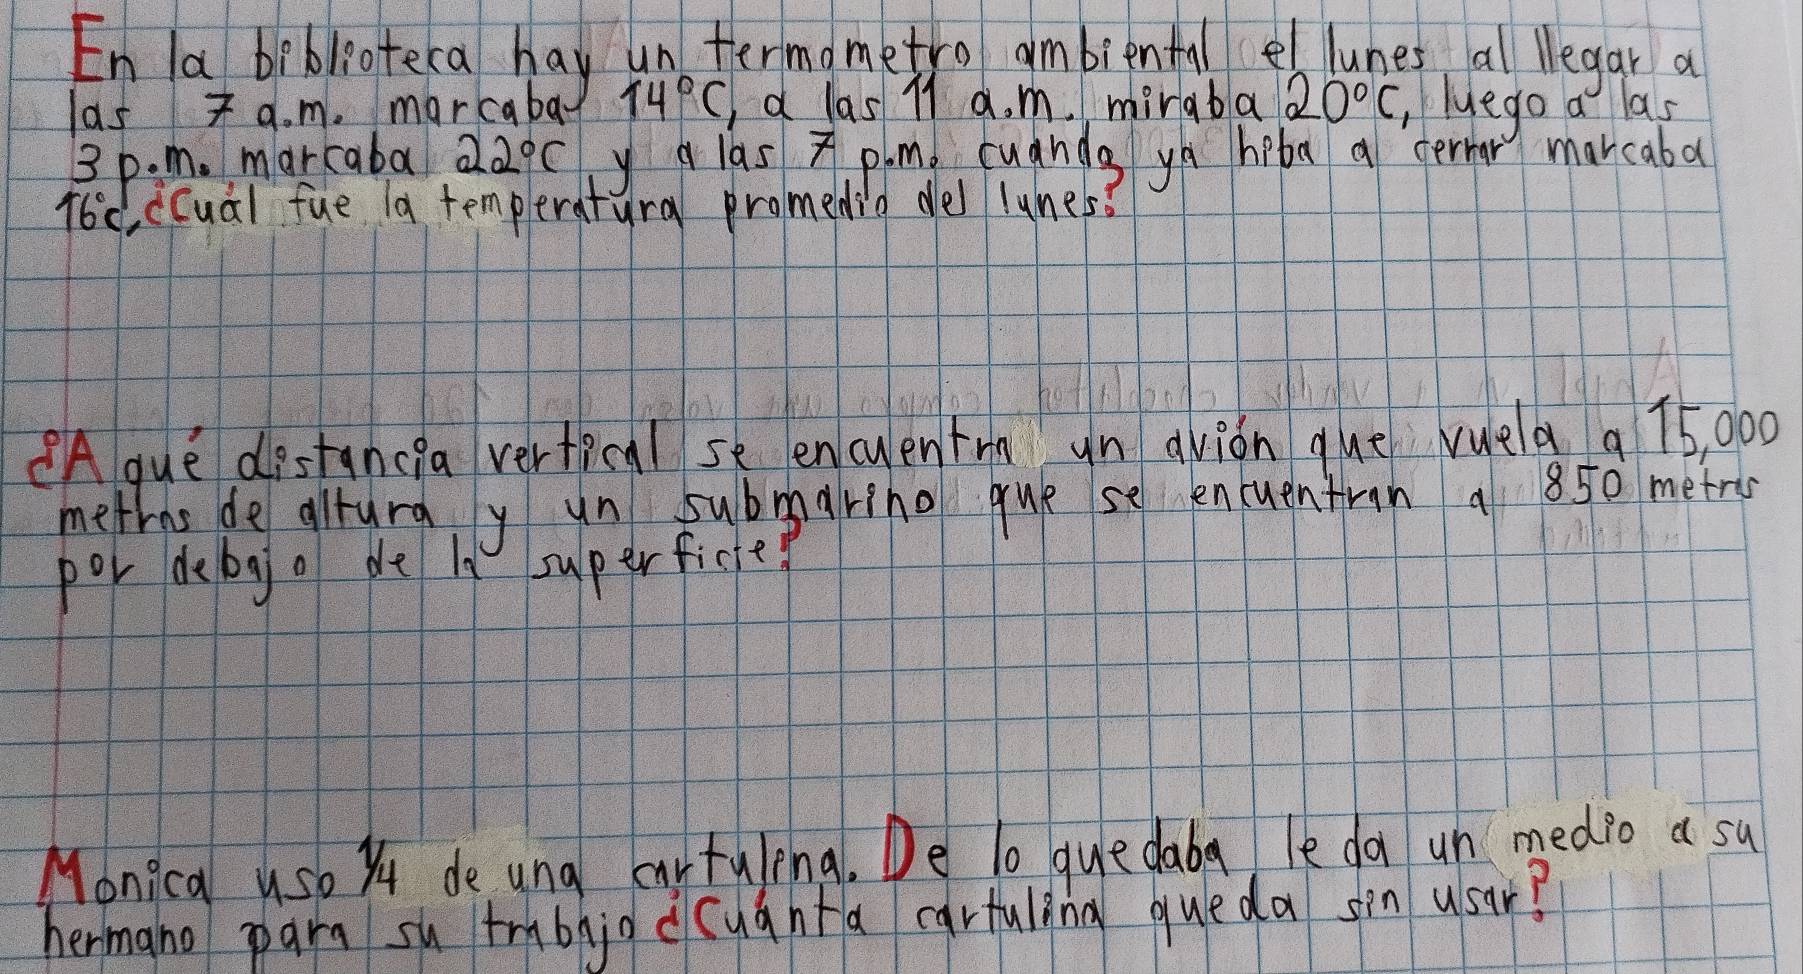 En la biblioteca hay un termometro ambiental el lunes al llegar a
las 7 a.m. marcaba 14°C, a las 11 a.m. miraba 20°C, luego a las
3 p.m. marcaba 22°C y a las 7 p.m. cuando ya hiba a cerrar marcaba
16°c, ¿Cuál fue la temperatura promedio del lunes?
¿A qué distancia vertical se encuentra un avión que vuela a 15,000
metros de altura y un submarino que se encuentran a 850 metros
por debajo de la superficie?
Monica uso 1/4 de una cartulina. De lo quedaba le da un medio a su
hermano para su trabajo ¿Cuánta cartulina queda sin usar?